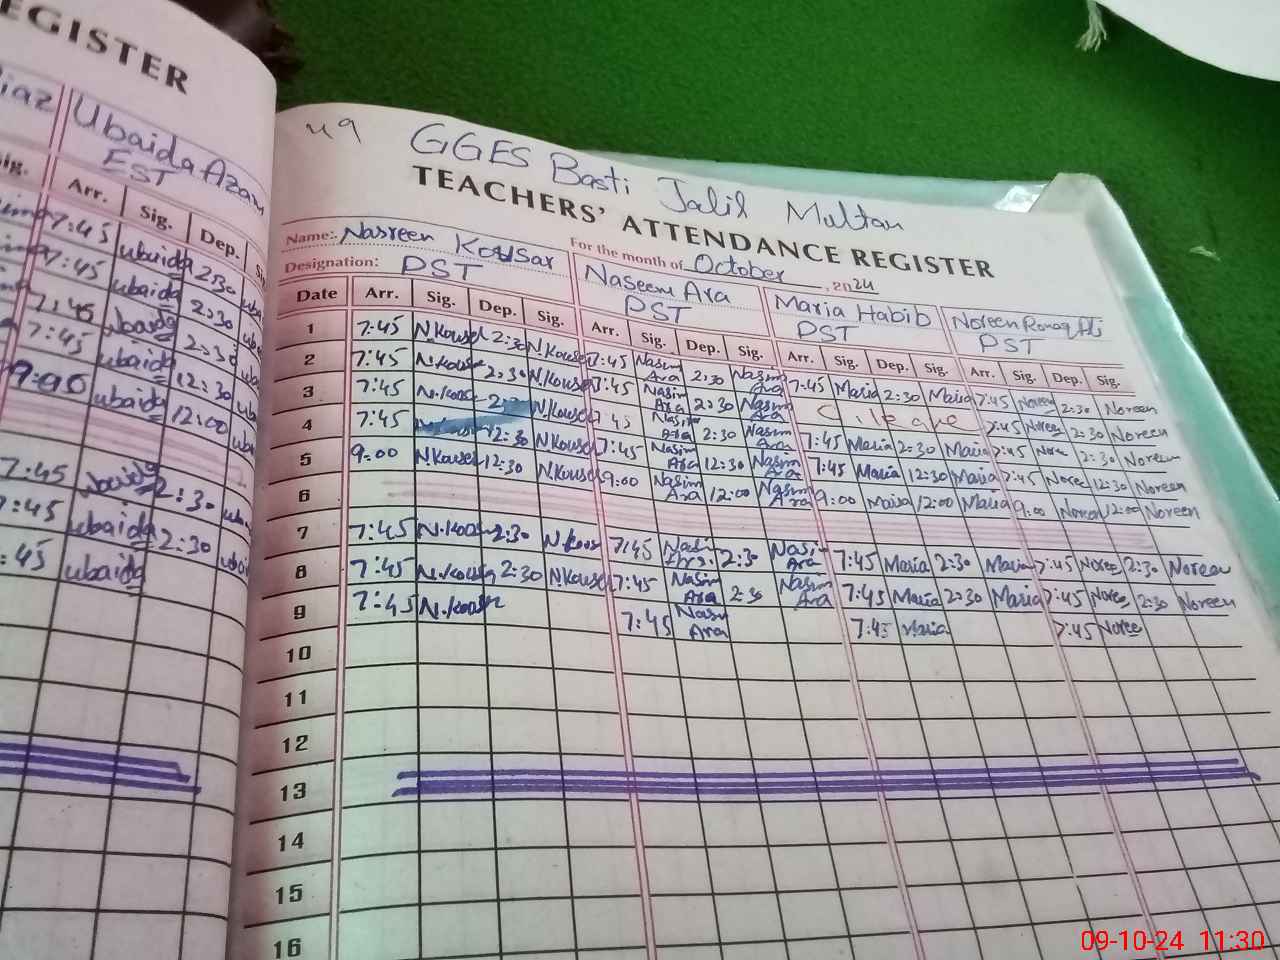 EGISTER
iaz Ubaida Azam
EST
Sig. Arr. Sig. Dep.
7:45 ubaida 2:30
7:45 ubaida 2:30
7:45 ubaida 2:30
7:45 ubaida 12:30
9:00 ubaida 12:00
7:45 ubaida 2:30
7:45 ubaida 2:30
7:45 ubaida
49 GGES Basti Jalil Multan
TEACHERS' ATTENDANCE REGISTER
Name: Nasreen Kousar For the month of October, 2024
Designation: PST Naseem Ara PST Maria Habib PST Noreen Ronaq Ali PST
Date Arr. Sig. Dep. Sig. Arr. Sig. Dep. Sig. Arr. Sig. Dep. Sig. Arr. Sig. Dep. Sig.
1 7:45 N.Kousar 2:30 N.Kousar 7:45 Nasim Ara 2:30 Nasim Ara 7:45 Maria 2:30 Maria 7:45 Noree 2:30 Noreen
2 7:45 N.Kousar 2:30 N.Kousar 7:45 Nasim Ara 2:30 Nasim Ara C. leave 7:45 Noree 2:30 Noreen
3 7:45 N.Kousar N.Kousar 7:45 Nasim Ara 2:30 Nasim Ara 7:45 Maria 2:30 Maria 7:45 Noree 2:30 Noreen
4 7:45 12:30 N.Kousar 7:45 Nasim Ara 12:30 Nasim Ara 7:45 Maria 12:30 Maria 7:45 Noree 12:30 Noreen
5 9:00 N.Kousar 12:30 N.Kousar 9:00 Nasim Ara 12:00 Nasim Ara 9:00 Maria 12:00 Maria 9:00 Noree 12:00 Noreen
6
7 7:45 N.Kousar 2:30 N.Kousar 7:45 Nasim Ara 2:30 Nasim Ara 7:45 Maria 2:30 Maria 7:45 Noree 2:30 Noreen
8 7:45 N.Kousar 2:30 N.Kousar 7:45 Nasim Ara 2:30 Nasim Ara 7:45 Maria 2:30 Maria 7:45 Noree 2:30 Noreen
9 7:45 N.Kousar 7:45 Nasim Ara 7:45 Maria 7:45 Noree
10
11
12
13
14
15
16
09-10-24 11:30